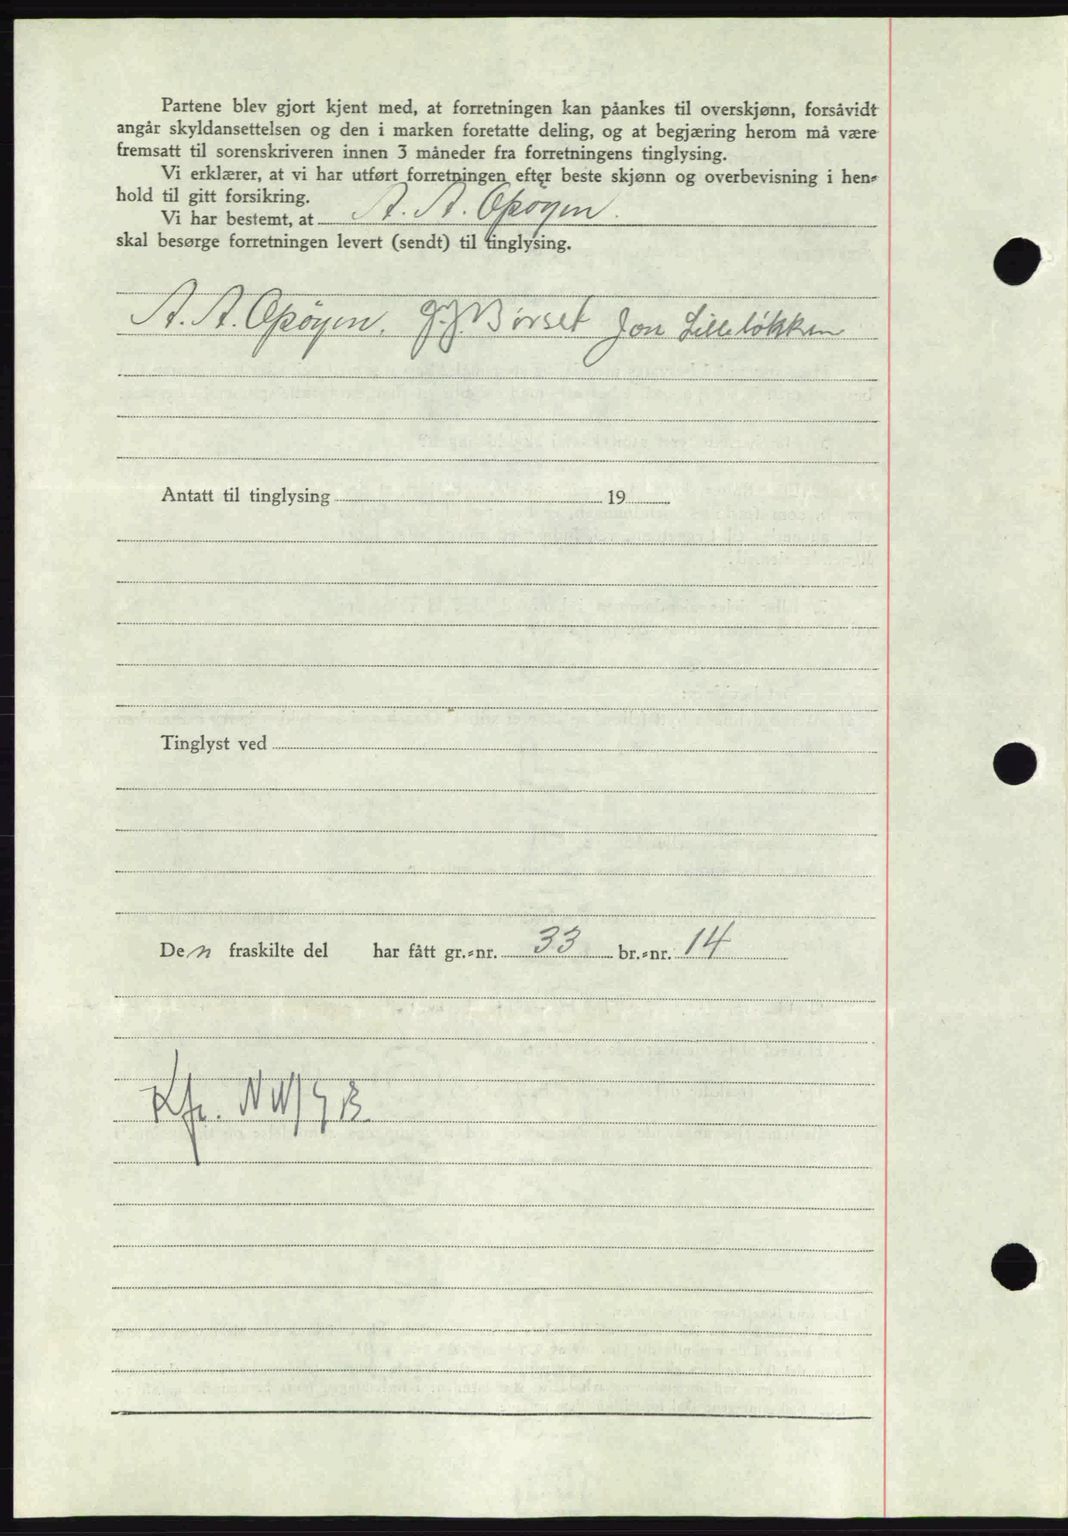 Partene blev gjort kjent med, at forretningen kan påankes til overskjønn, forsåvidt
angår skyldansettelsen og den i marken foretatte deling, og at begjæring herom må være
fremsatt til sorenskriveren innen 3 måneder fra forretningens tinglysing.
Vi erklærer, at vi har utført forretningen efter beste skjønn og overbevisning i hen-
hold til gitt forsikring.
Vi har bestemt, at A. A. Opøyen.
skal besørge forretningen levert (sendt) til tinglysing.
A. A. Opøyen. J. J. Børset Jon Lilleløkken
Antatt til tinglysing 19
Tinglyst ved
Den fraskilte del har fått gr.-nr. 33 br.-nr. 14
Kfr. NW/GB